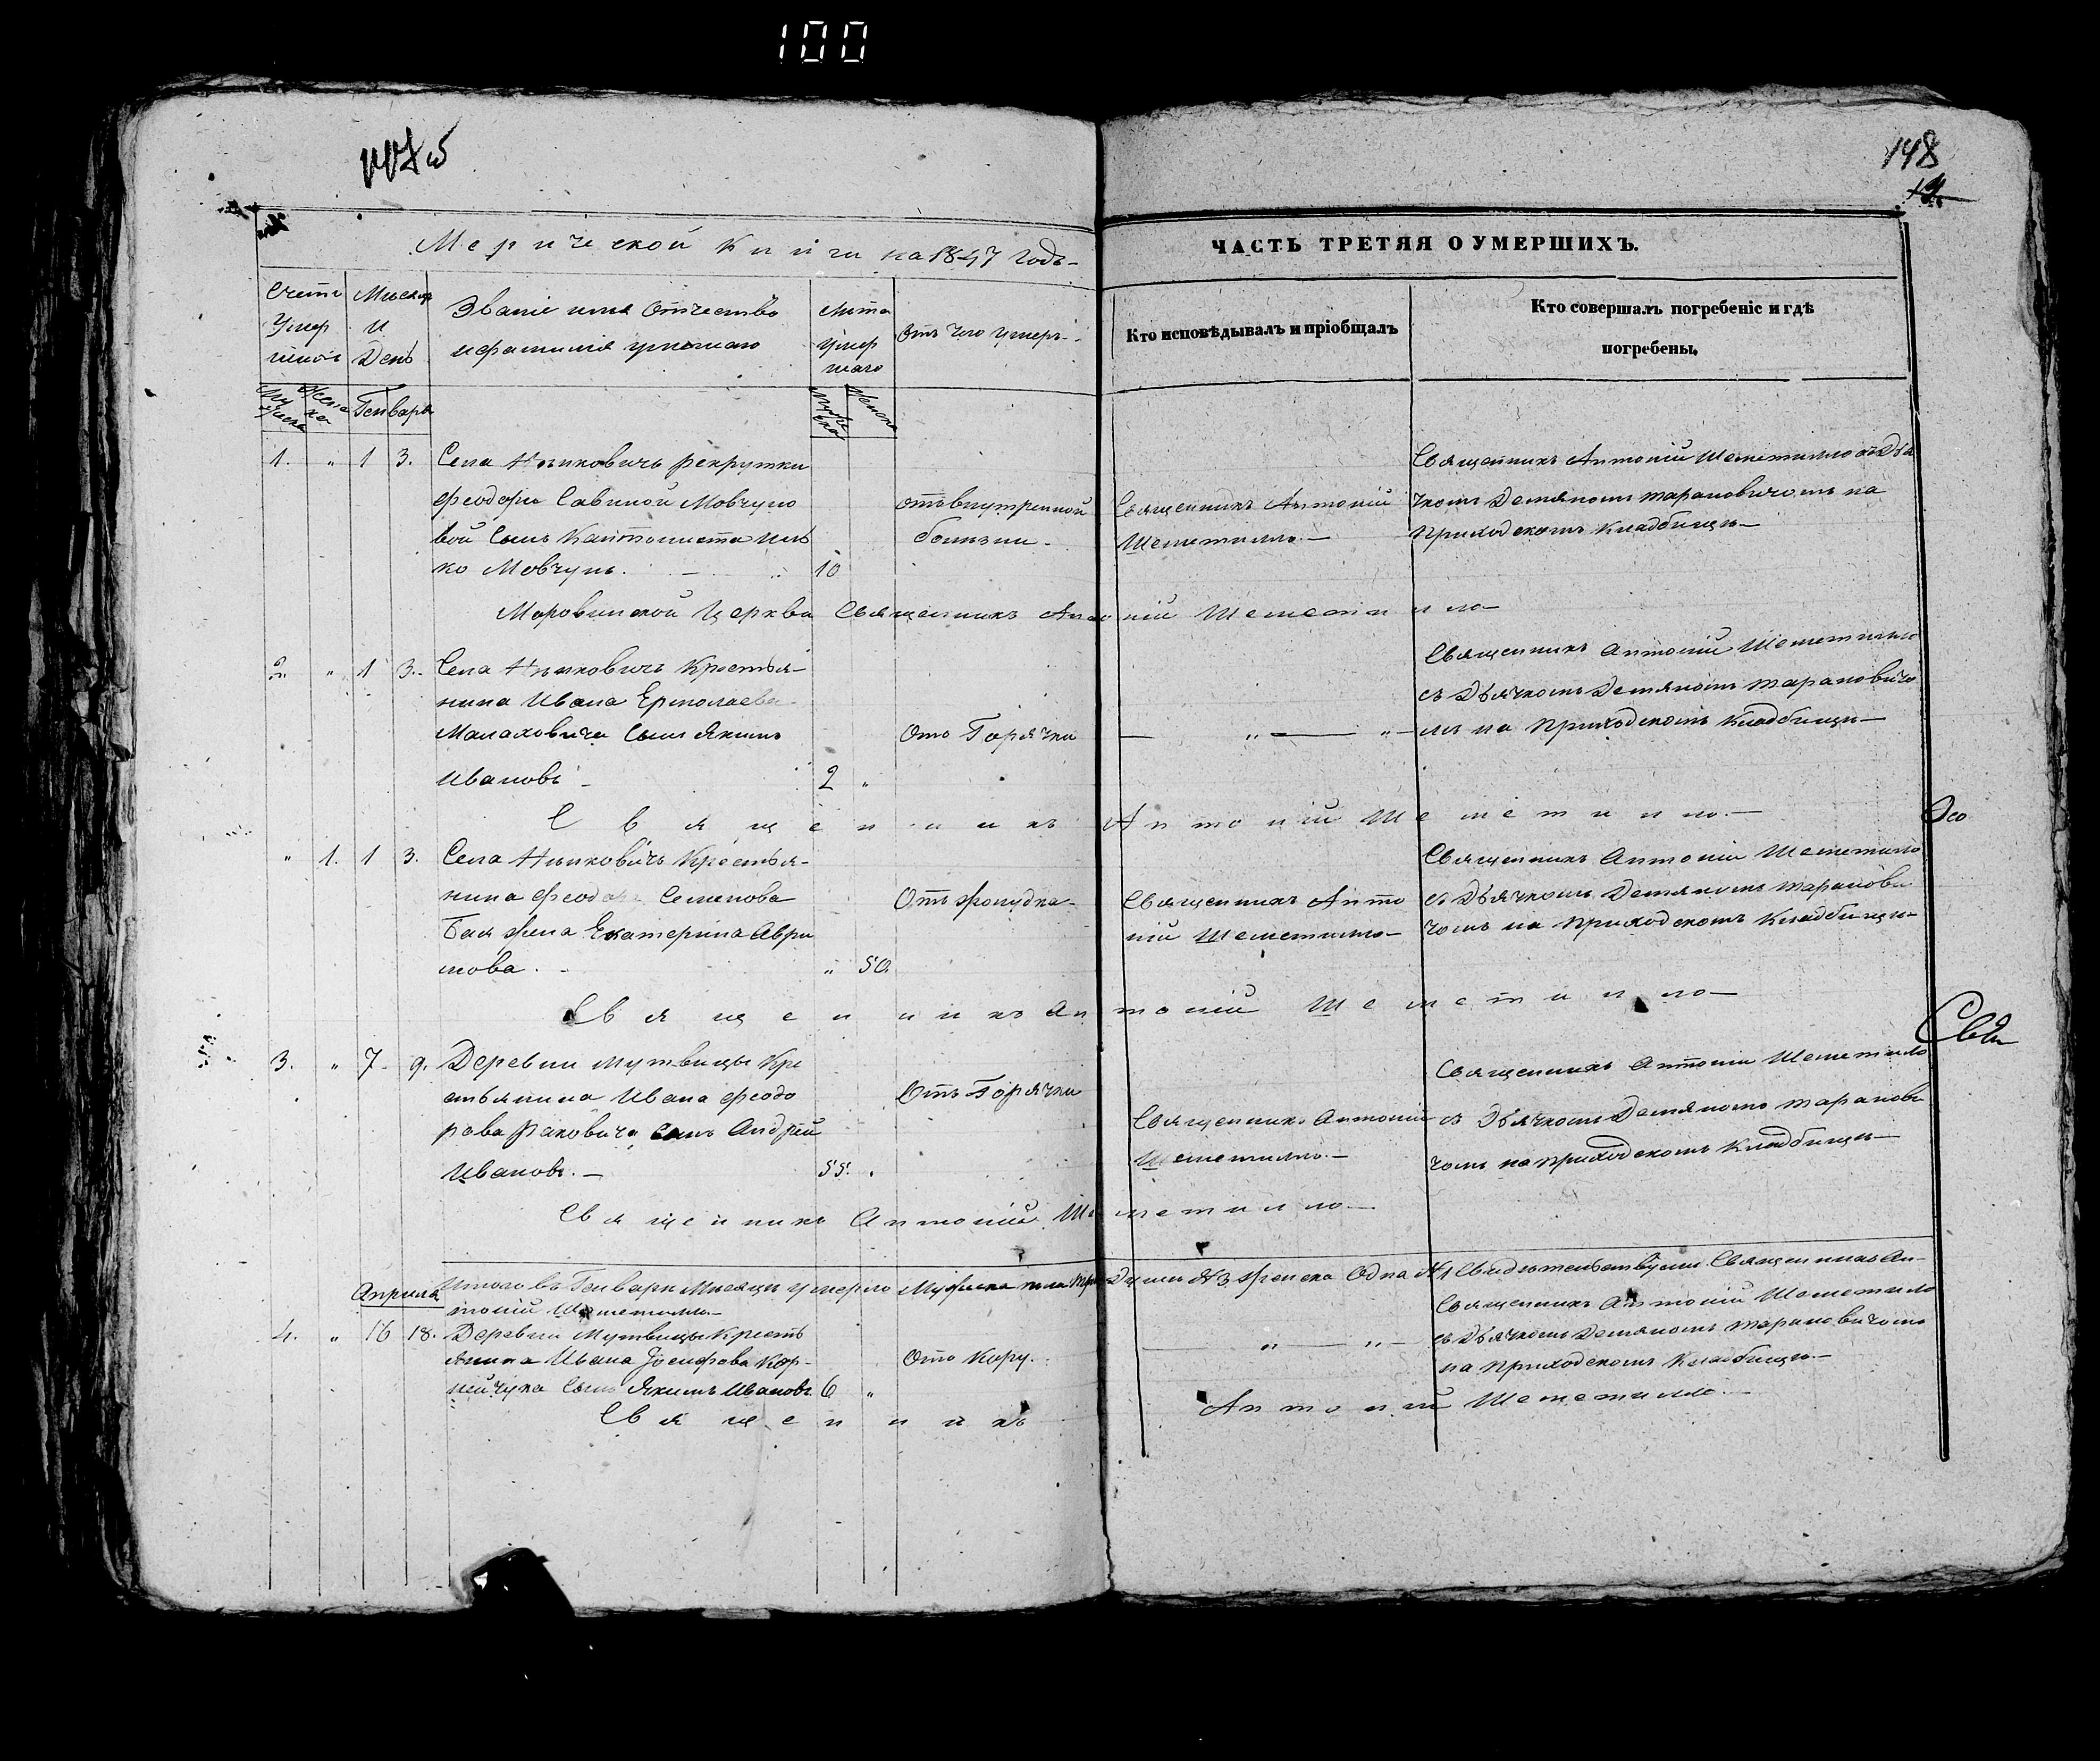 100
148
Метрической Книги на 1847 Годъ
ЧАСТЬ ТРЕТЯЯ О УМЕРШИХЪ.
Счетъ
Умер
шихъ
Мѣсяцъ
и
День
Званіе имя Отчество
и фамилія умершаго
Лѣта
умер
шаго
Отъ чего умеръ
Кто исповѣдывалъ и пріобщалъ
Кто совершалъ погребеніе и гдѣ
погребены.
Генваря
1. „ 1 3.
Села Нѣнковичь рекрутки
Феодоры Савиной Мовчуно
вой Сынъ Кантониста
ко Мовчунъ.
10
отъ внутренной
болѣзни
Священникъ Антоній
Шеметилло
Священникъ Антоній Шеметилло съ Дья
чкомъ Деміяномъ Тарановичомъ на
Приходскомъ Кладбищѣ
Церкви Священникъ Антоній Шеметилло
2. „ 1 3.
Села Нѣнковичь Крестья-
нина Ивана Ермолаева
Малаховича Сынъ Якимъ
Ивановъ
2 „
Отъ Горячки
— „ — „ —
Священникъ Антоній Шеметилло
съ Дьячкомъ Деміяномъ Тарановичо
мъ на Приходскомъ Кладбищѣ
Священникъ Антоній Шеметилло
„ 1. 1 3.
Села Нѣнковичь Крестья-
нина Феодора Семенова
жена Екатерина
„ 50
Священникъ Анто
ній Шеметилло
Священникъ Антоній Шеметилло
съ Дьячкомъ Деміяномъ Таранови
чомъ на Приходскомъ Кладбищѣ
Священникъ Антоній Шеметилло
3. „ 7 9.
Деревни Мутвицы Кре
стьянина Ивана Феодо
рова Раковича Сынъ Андрей
Ивановъ.
55. „
Отъ Горячки
Священникъ Антоній
Шеметилло
Священникъ Антоній Шеметилло
съ Дьячкомъ Деміяномъ Таранови
чомъ на Приходскомъ Кладбищѣ
Священникъ Антоній Шеметилло
Итого въ Генварѣ Мѣсяцѣ умерло Мужеска пола три Души №3 женска Одна №1 Священникъ Ан-
тоній Шеметилло
Апрѣля
4. „ 16 18.
Деревни Мутвицы Кресть
янина Ивана Іосифова Кор-
нейчука Сынъ Якимъ Ивановъ
6 „
Отъ Кору.
— „ — „ —
Священникъ Антоній Шеметилло
съ Дьячкомъ Деміяномъ Тарановичомъ
на Приходскомъ Кладбищѣ
Священникъ Антоній Шеметилло